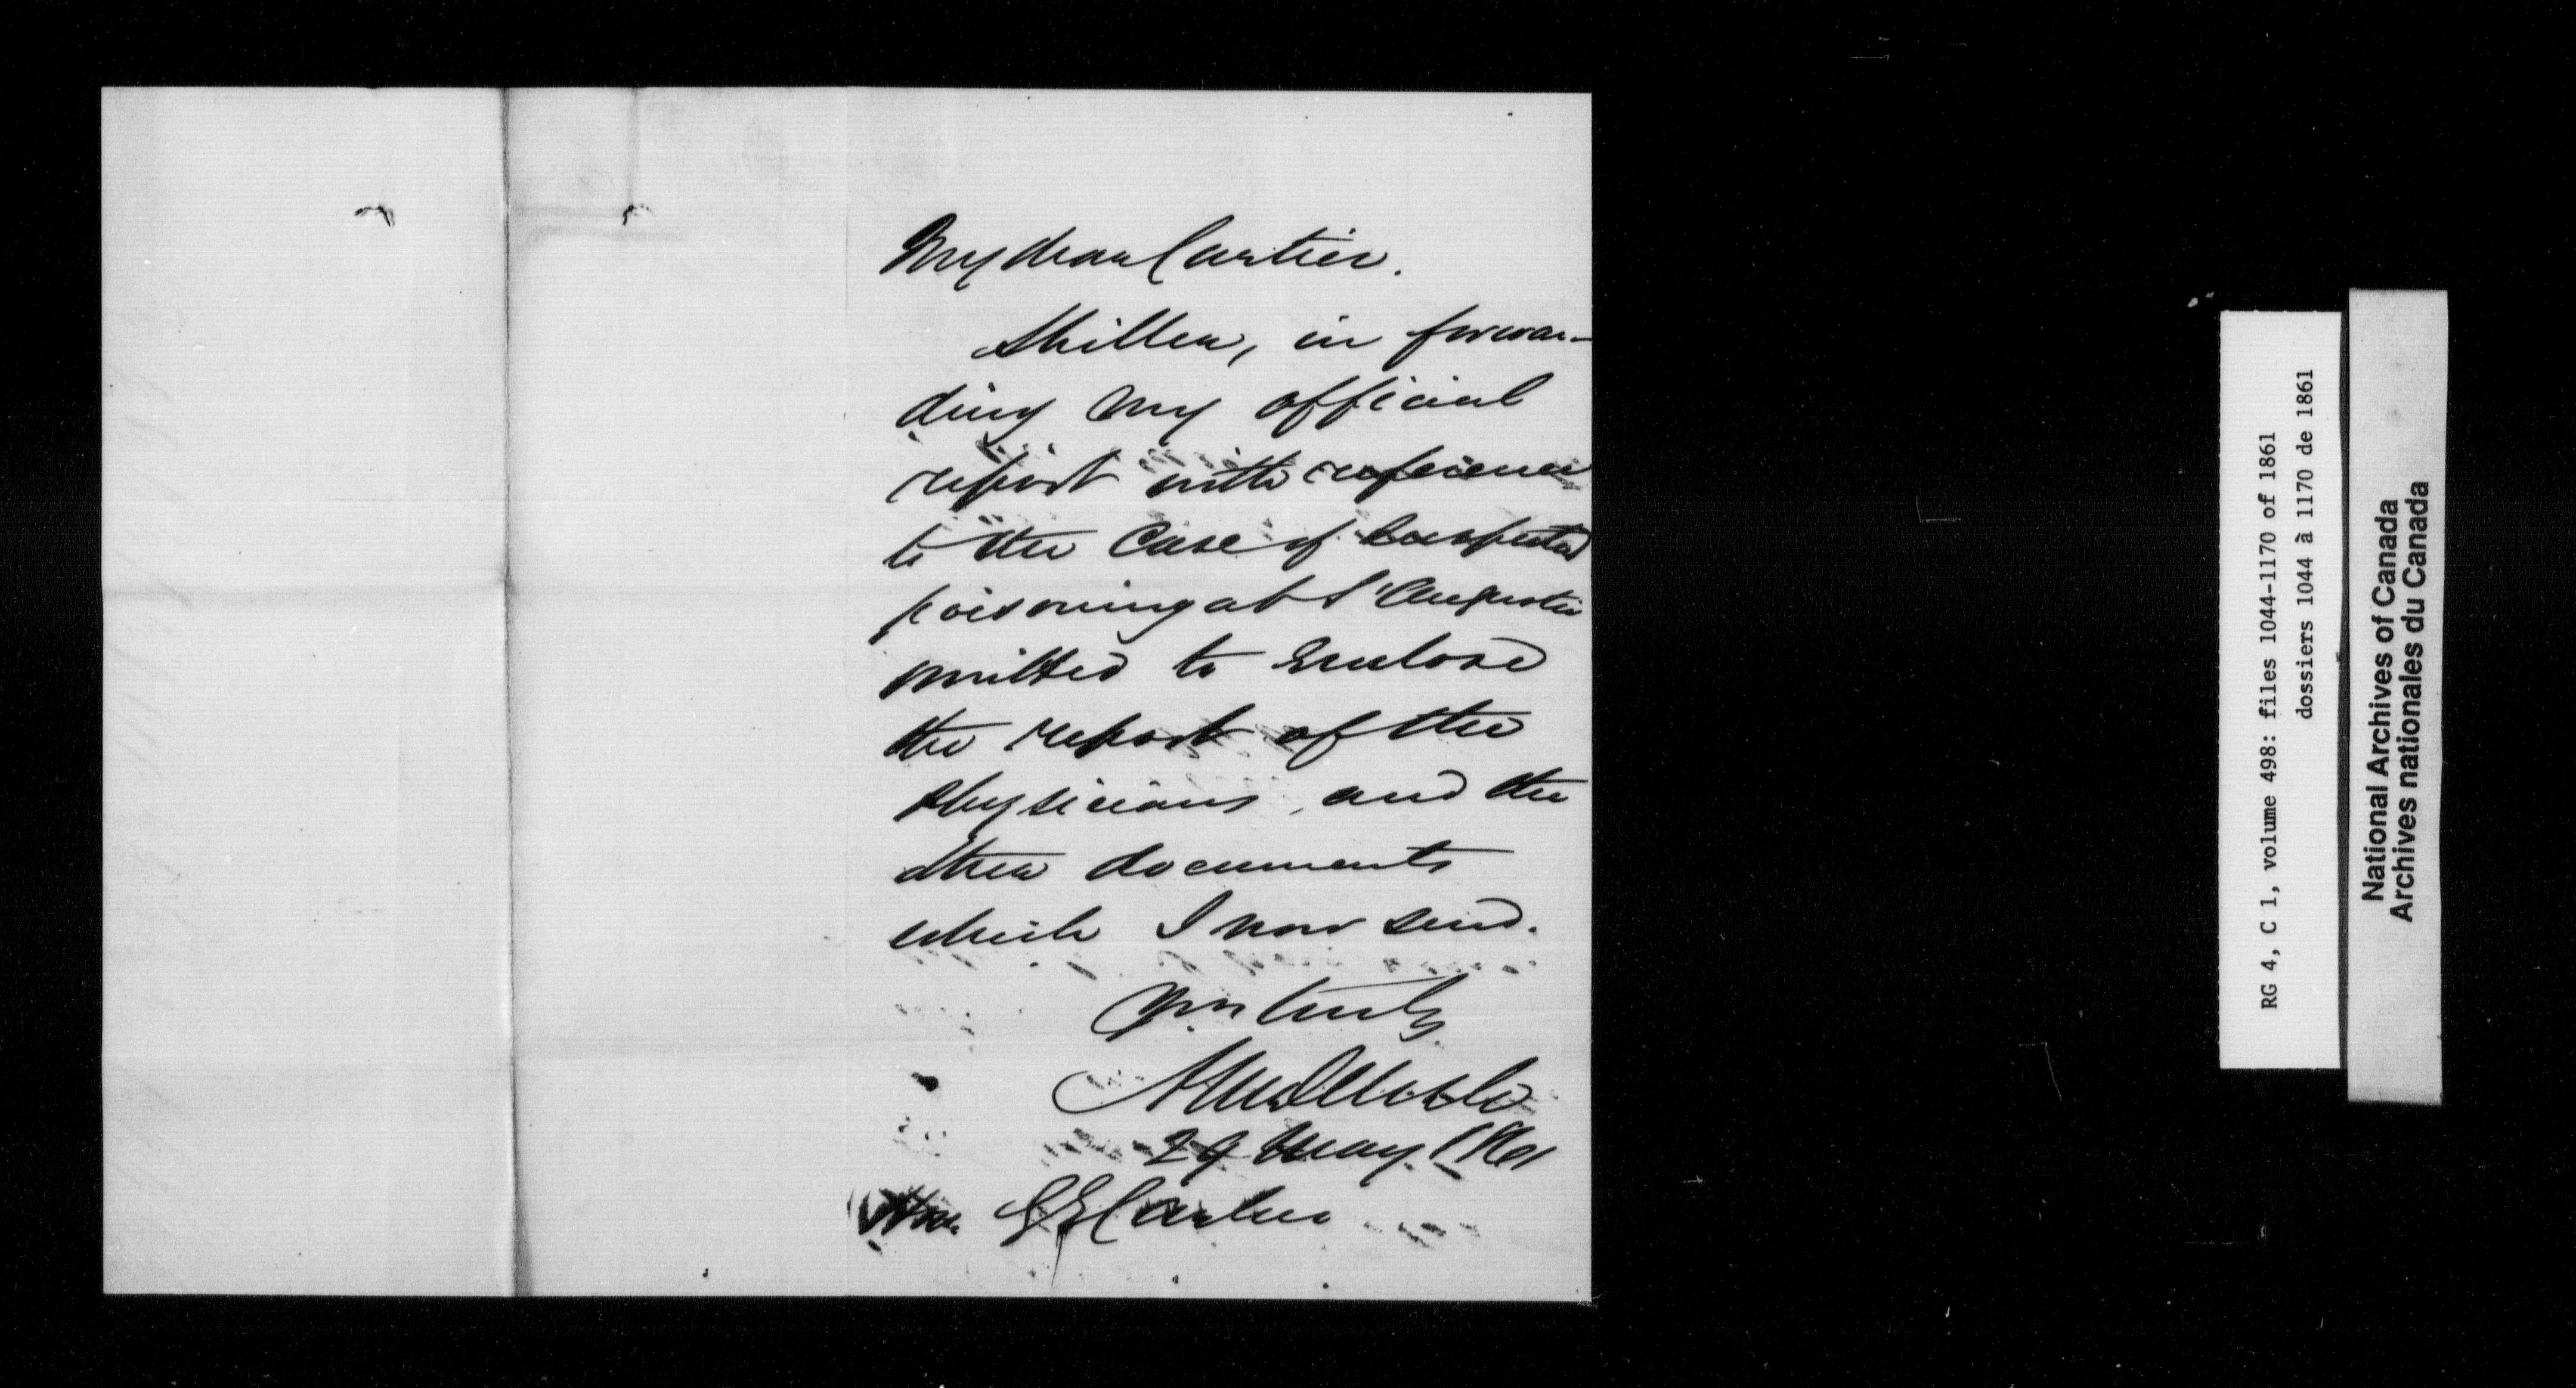 My dear Cartier.
Miller, in forwar-
ding my official
report with reference
to the case of suspected
poisoning at St Augustin
omitted to enclose
the report of the
physicians, and the
other documents
which I now send.
Yrs truly
29 May 1861
Hon. G E Cartier
RG 4, C 1, volume 498: files 1044-1170 of 1861
dossiers 1044 à 1170 de 1861
National Archives of Canada
Archives nationales du Canada